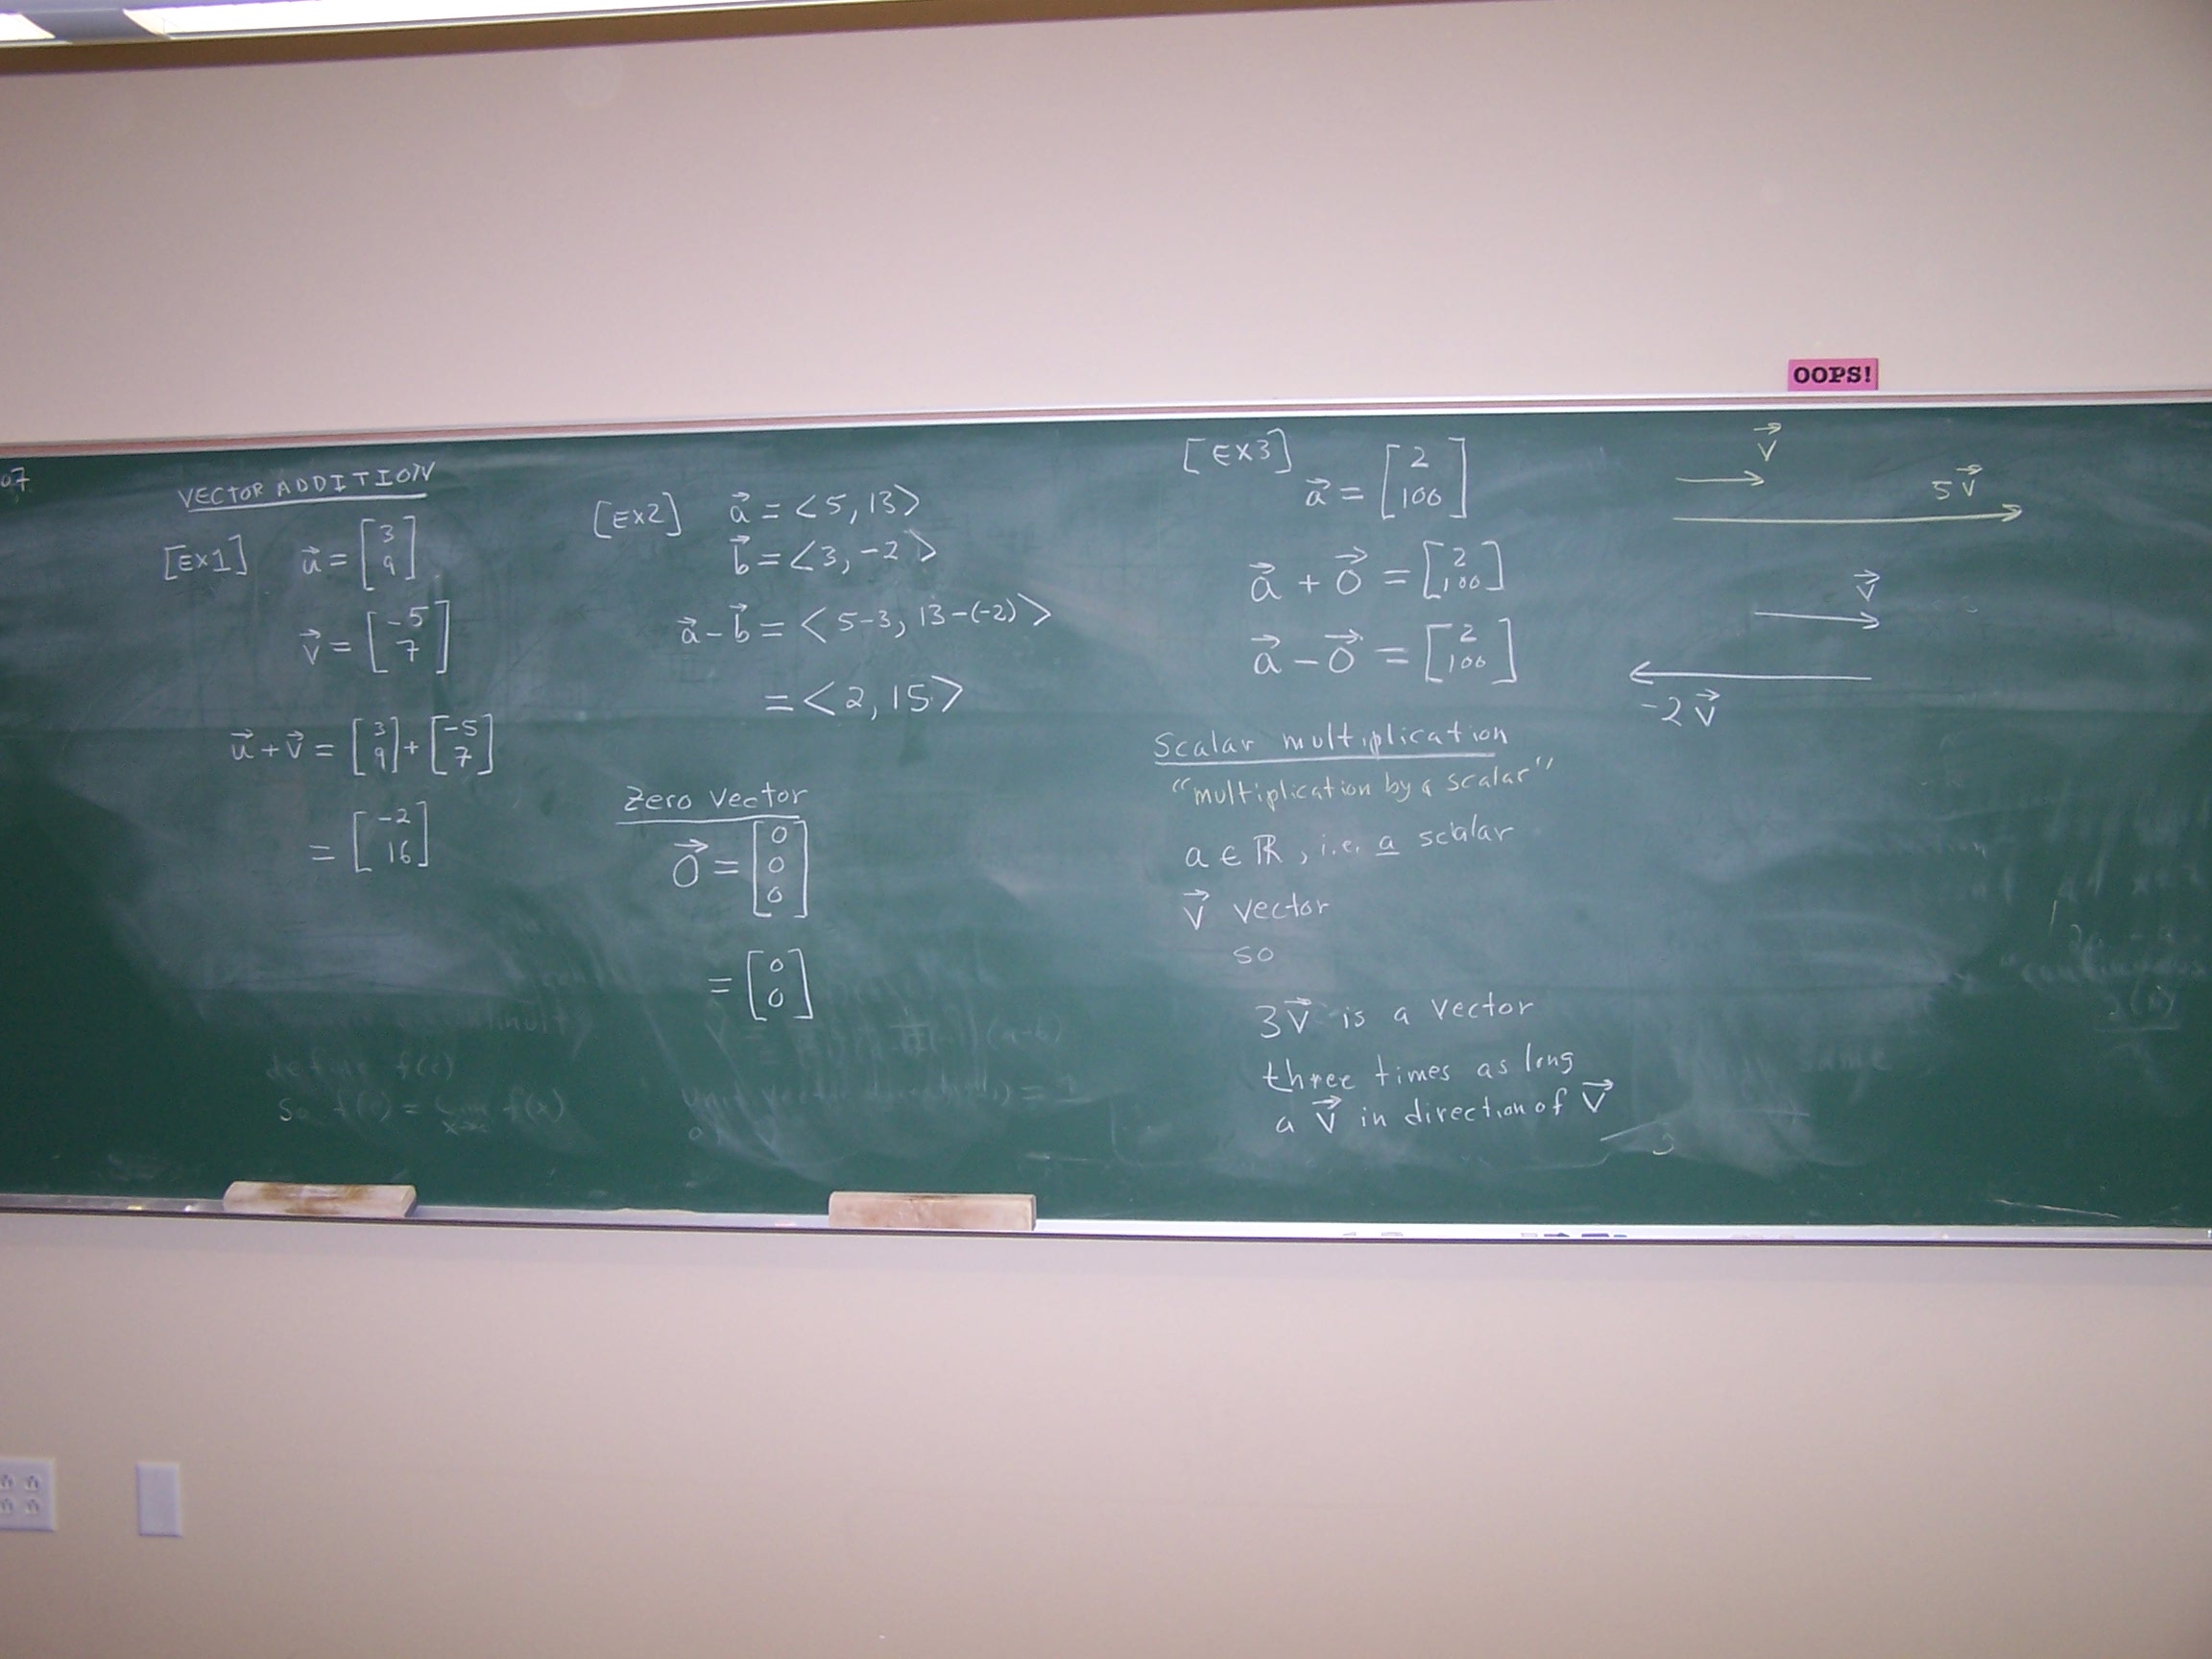 OOPS!
07
VECTOR ADDITION
[EX1] u⃗ = [3 9]
v⃗ = [-5 7]
u⃗ + v⃗ = [3 9] + [-5 7]
= [-2 16]
[EX2] a⃗ = <5, 13>
b⃗ = <3, -2>
a⃗ - b⃗ = <5-3, 13-(-2)>
= <2, 15>
Zero Vector
0⃗ = [0 0 0]
= [0 0]
[EX3]
a⃗ = [2 100]
a⃗ + 0⃗ = [2 100]
a⃗ - 0⃗ = [2 100]
Scalar multiplication
"multiplication by a scalar"
a ∈ ℝ, i.e. a scalar
v⃗ vector
so
3v⃗ is a vector
three times as long
a v⃗ in direction of v⃗
v⃗
5v⃗
v⃗
-2v⃗
define f(c)
So f(c) = lim f(x)
x→c
same